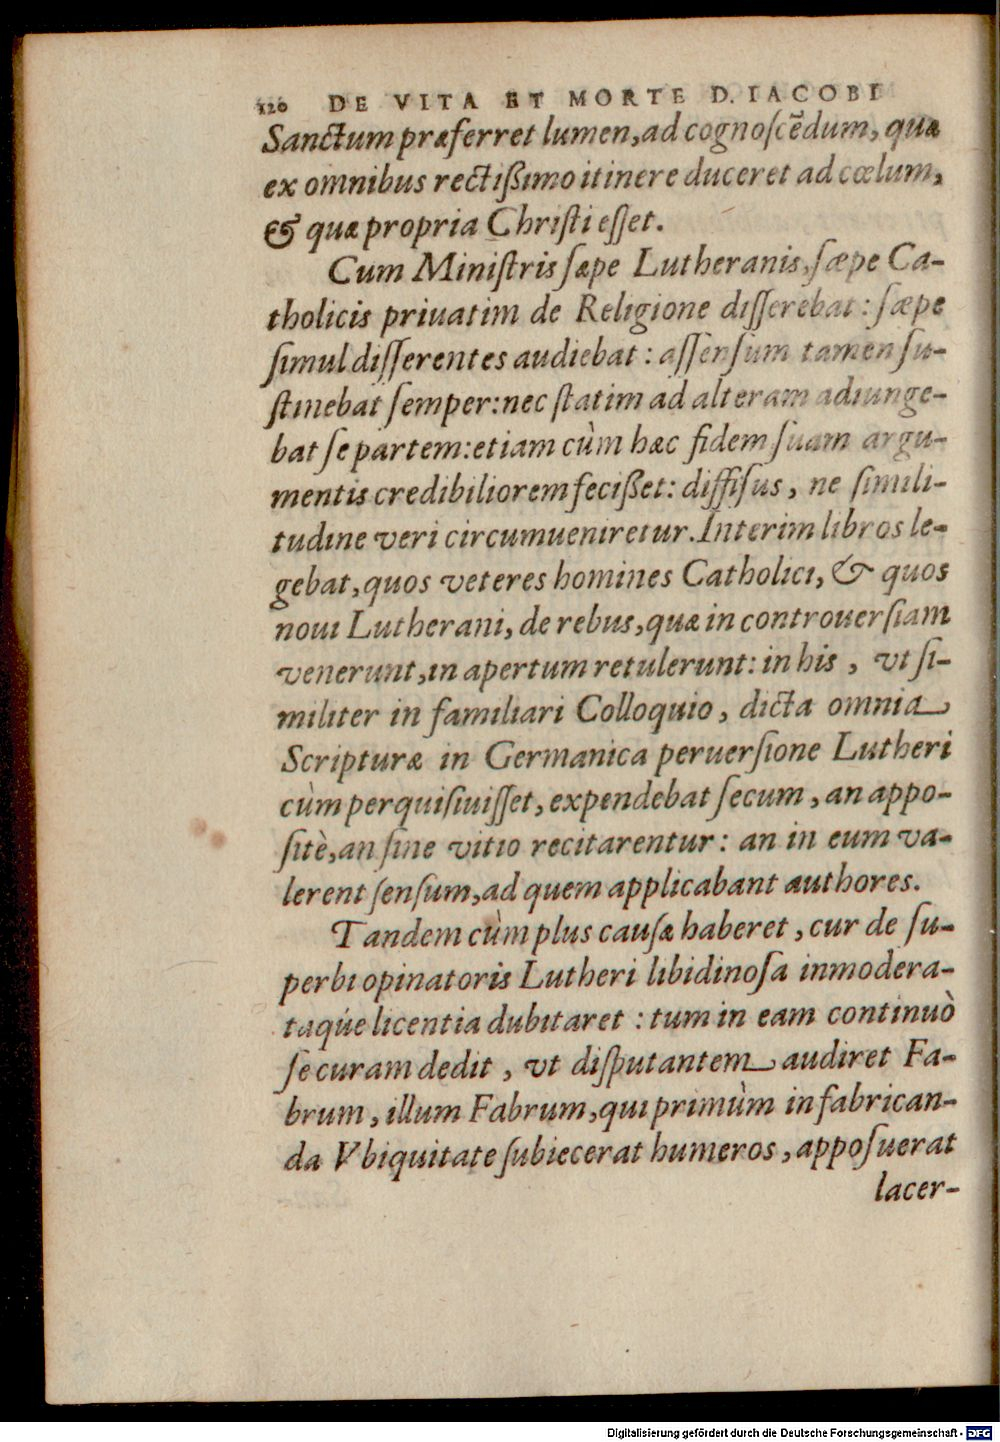 120 DE VITA ET MORTE D. IACOBI
Sanctum præferret lumen, ad cognoſcēdum, quæ
ex omnibus rectißimo itinere duceret ad cœlum,
& quæ propria Chriſti eſſet.
Cum Miniſtris ſæpe Lutheranis, ſæpe Ca-
tholicis priuatim de Religione diſſerebat: ſæpe
ſimul diſſerentes audiebat: aſſenſum tamen ſu-
ſtinebat ſemper: nec ſtatim ad alteram adiunge-
bat ſe partem: etiam cùm hæc fidem ſuam argu-
mentis credibiliorem fecißet: diffiſus, ne ſimili-
tudine veri circumueniretur. Interim libros le-
gebat, quos veteres homines Catholici, & quos
noui Lutherani, de rebus, quæ in controuerſiam
venerunt, in apertum retulerunt: in his, vt ſi-
militer in familiari Colloquio, dicta omnia
Scripturæ in Germanica peruerſione Lutheri
cùm perquiſiuiſſet, expendebat ſecum, an appo-
ſitè, an ſine vitio recitarentur: an in eum va-
lerent ſenſum, ad quem applicabant authores.
Tandem cùm plus cauſæ haberet, cur de ſu-
perbi opinatoris Lutheri libidinoſa inmodera-
taqúe licentia dubitaret: tum in eam continuò
ſe curam dedit, vt diſputantem audiret Fa-
brum, illum Fabrum, qui primùm in fabrican-
da Vbiquitate ſubiecerat humeros, appoſuerat
lacer-
Digitalisierung gefördert durch die Deutsche Forschungsgemeinschaft - DFG